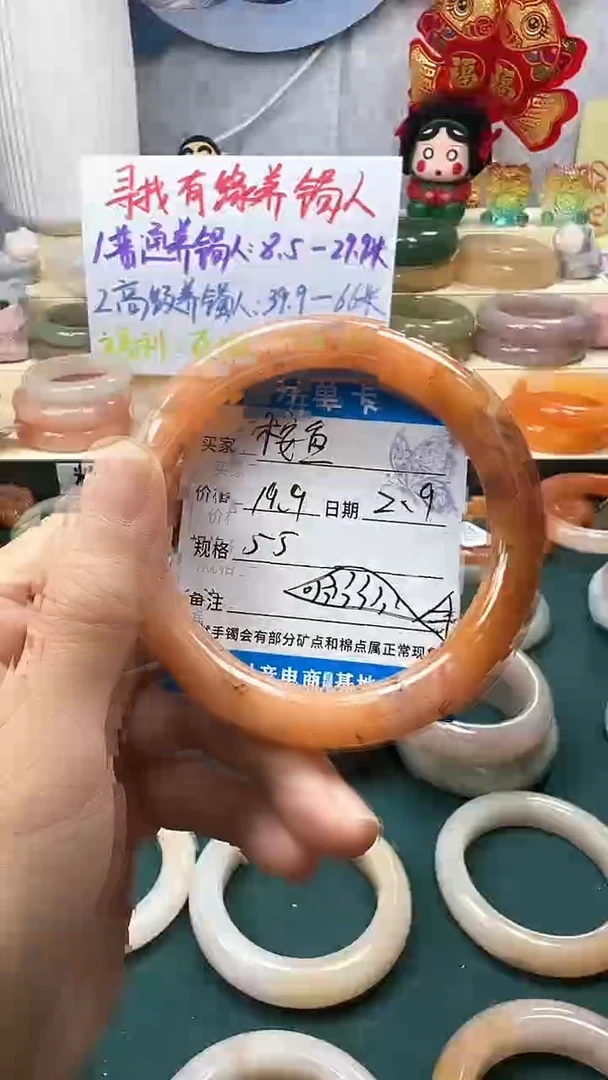 寻找有缘养镯人
1普通养镯人:8.5-29.9米
2高级养镯人:39.9-66米
福利:
单卡
买家
价格 19.9 日期 2.9
规格 55
备注
手镯会有部分矿点和棉点属正常现
电商 基地